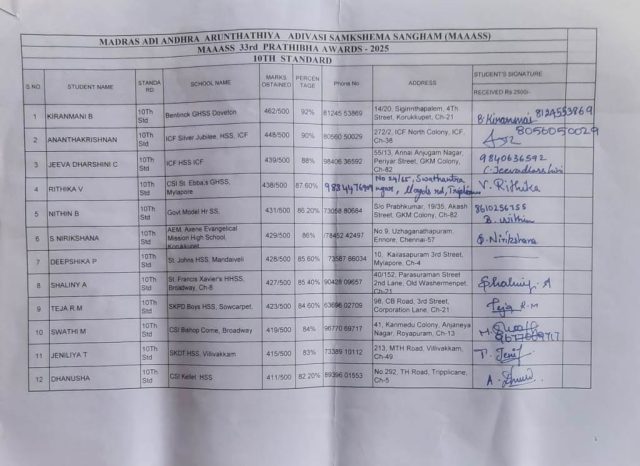 MADRAS ADI ANDHRA ARUNTHATHIYA ADIVASI SAMKSHEMA SANGHAM (MAAASS)
MAAASS 33rd PRATHIBHA AWARDS - 2025
10TH STANDARD
S.NO. STUDENT NAME STANDA RD SCHOOL NAME MARKS OBTAINED PERCEN TAGE Phone No ADDRESS STUDENT'S SIGNATURE
RECEIVED Rs 2500/-
1 KIRANMANI B 10Th Std Bentinck GHSS Doveton 462/500 92% 81245 53869 14/20, Siginnthapalem, 4Th Street, Korukkupet, Ch-21 B. Kiranmai 8124553869
2 ANANTHAKRISHNAN 10Th Std ICF Silver Jubilee, HSS, ICF 448/500 90% 80560 50029 272/2, ICF North Colony, ICF, Ch-38 8056050029
3 JEEVA DHARSHINI C 10Th Std ICF HSS ICF 439/500 88% 98406 36592 55/13, Annai Anjugam Nagar, Periyar Street, GKM Colony, Ch-82 9840636592
4 RITHIKA V 10Th Std CSI St. Ebba's GHSS, Mylapore 438/500 87.60% No 24/65, Swathantra nagar, Lloyds rd, Triplicane V. Rithika
5 NITHIN B 10Th Std Govt Model Hr SS, 431/500 86.20% 73058 80684 S/o Prabhkumar, 19/35, Akash Street, GKM Colony, Ch-82 8610256755
B. Nithin
6 S NIRIKSHANA 10Th Std AEM, Axene Evangelical Mission High School, Korukkupet 429/500 86% 78452 42497 No 9, Uzhaganathapuram, Ennore, Chennai-57 S. Nirikshana
7 DEEPSHIKA P 10Th Std St. Johns HSS, Mandaiveli 428/500 85.60% 73587 66034 10, Kairasapuram 3rd Street, Mylapore, Ch-4
8 SHALINY A 10Th Std St. Francis Xavier's HHSS, Broadway, Ch-8 427/500 85.40% 90428 09657 40/152, Parasuraman Street 2nd Lane, Old Washermenpet, Ch-21 Shaliny. A
9 TEJA R M 10Th Std SKPD Boys HSS, Sowcarpet, 423/500 84.60% 63696 02709 98, CB Road, 3rd Street, Corporation Lane, Ch-21 Teja R.M
10 SWATHI M 10Th Std CSI Bishop Corrie, Broadway 419/500 84% 96770 69717 41, Kanmedu Colony, Anjaneya Nagar, Royapuram, Ch-13
11 JENILIYA T 10Th Std SKDT HSS, Villivakkam 415/500 83% 73389 10112 213, MTH Road, Villivakkam, Ch-49 T. Jenif
12 DHANUSHA 10Th Std CSI Kellet HSS 411/500 82.20% 89396 01553 No.292, TH Road, Tripplicane, Ch-5